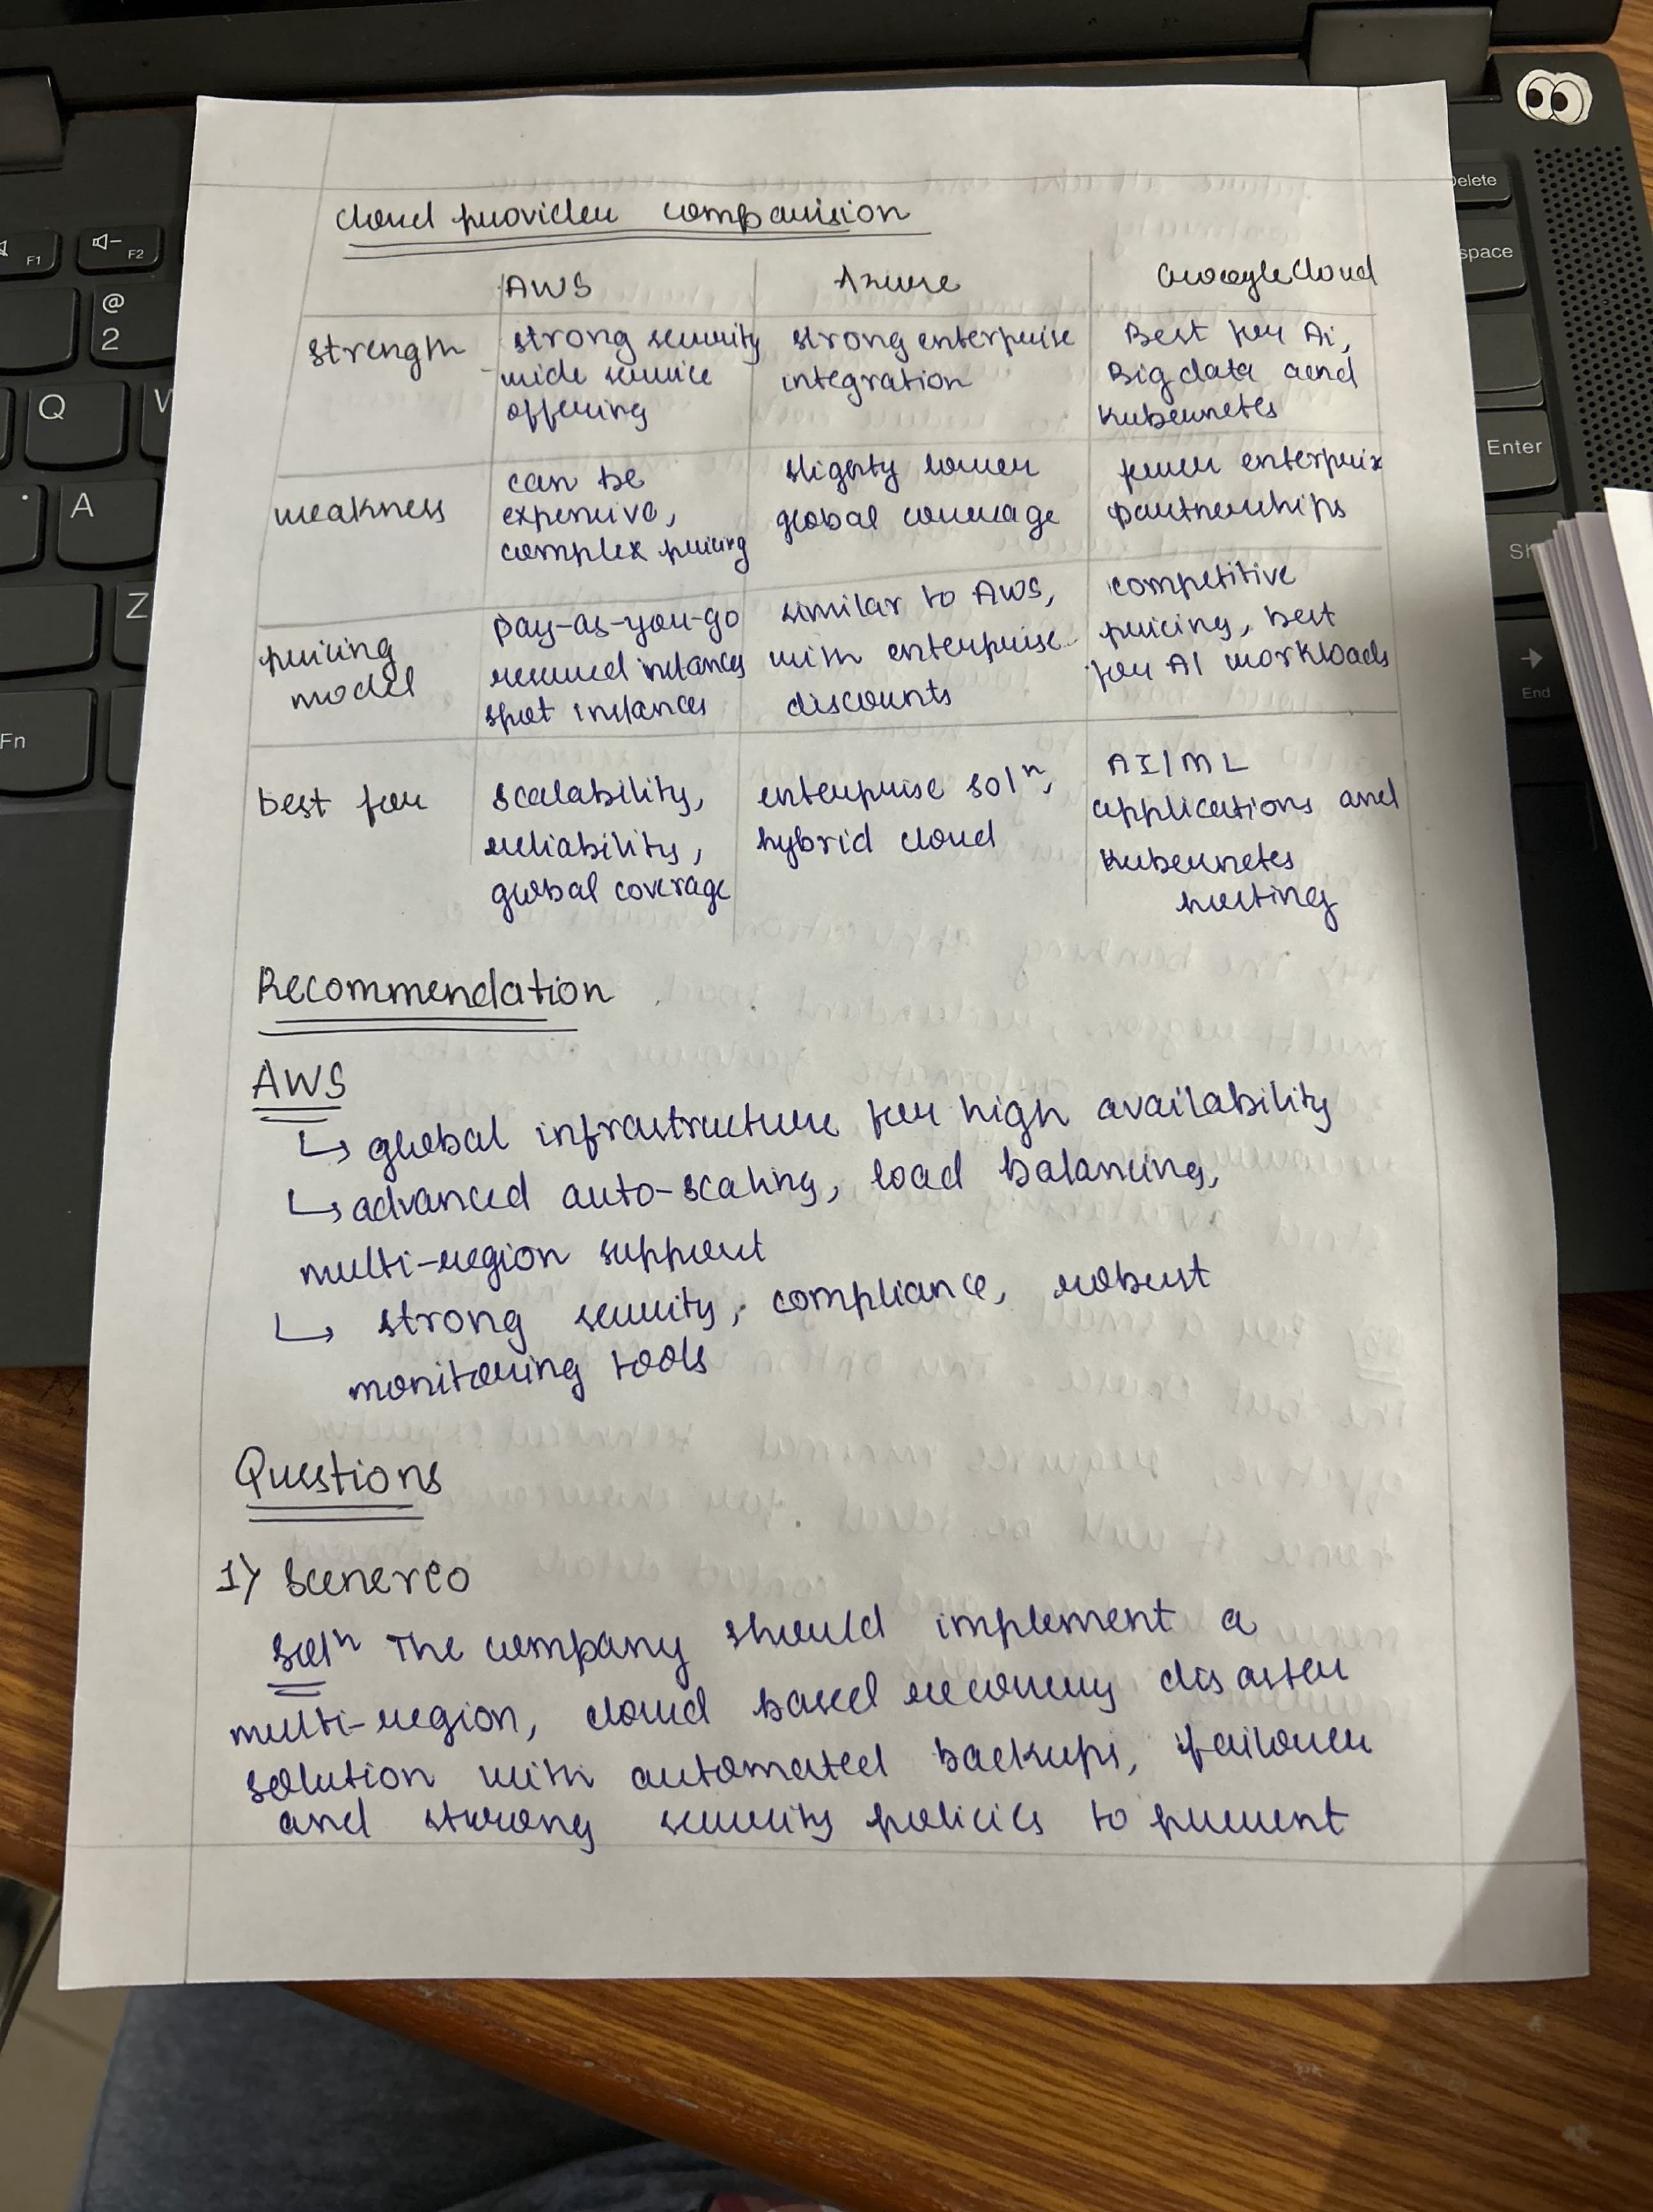 Cloud provider comparision
AWS Azure Google Cloud
strength strong security wide service offering strong enterprise integration Best for Ai, Big data aend Kubernetes
weakness can be expensive, complex pricing slighty lower global coverage fewer enterprise partnerships
pricing model pay-as-you-go reserved instances spot instances similar to AWS, with enterprise discounts competitive pricing, best for AI workloads
best for scalability, reliability, global coverage enterprise solⁿ, hybrid cloud AI/ML applications and Kubernetes hosting
Recommendation
AWS
↳ global infrastructure for high availability
↳ advanced auto-scaling, load balancing,
multi-region support
↳ strong security, compliance, robust
monitoring tools
Questions
1) Scenereo
Solⁿ The company should implement a
multi-region, cloud based recovery disaster
solution with automated backups, failover
and strong security policies to prevent
F1
F2
@
2
Q
W
A
Z
Fn
Delete
space
Enter
Sh
End